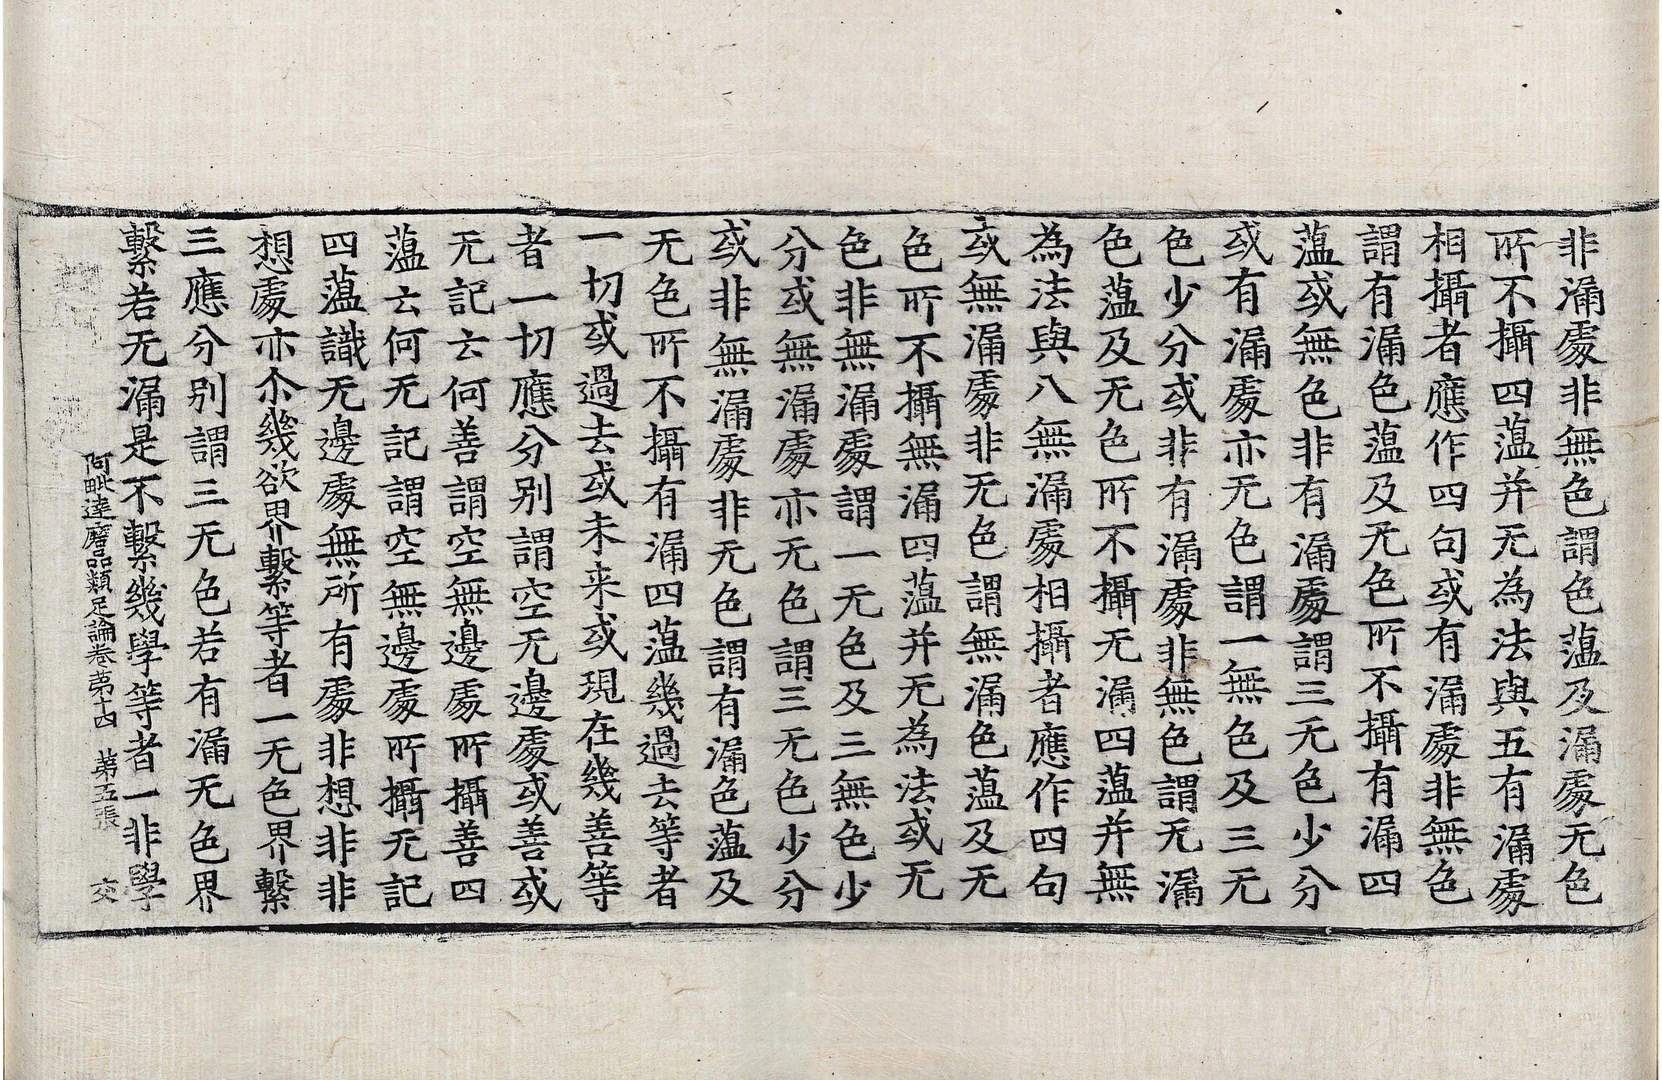 非漏處非無色謂色蕰及漏處无色
所不攝四蕰并无為法與五有漏處
相攝者應作四句或有漏處非無色
謂有漏色蕰及无色所不攝有漏四
蕰或無色非有漏處謂三无色少分
或有漏處亦无色謂一無色及三无
色少分或非有漏處非無色謂无漏
色蕰及无色所不攝无漏四蕰并無
為法與八無漏處相攝者應作四句
或無漏處非无色謂無漏色蕰及无
色所不攝無漏四蕰并无為法或无
色非無漏處謂一无色及三無色少
分或無漏處亦无色謂三无色少分
或非無漏處非无色謂有漏色蕰及
无色所不攝有漏四蕰幾過去等者
一切或過去或未来或現在幾善等
者一切應分別謂空无邊處或善或
无記云何善謂空無邊處所攝善四
蕰云何无記謂空無邊處所攝无記
四蕰識无邊處無所有處非想非非
想處亦尒幾欲界繫等者一无色界繫
三應分別謂三无色若有漏无色界
繫若无漏是不繫幾學等者一非學
阿毗達磨品類足論卷第十四　第五張　交